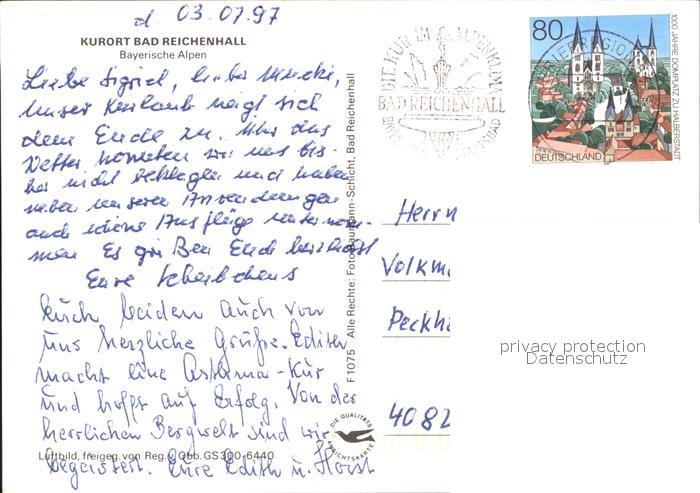 d. 03.07.97
KURORT BAD REICHENHALL
Bayerische Alpen
Liebe Sigrid, lieber
unser Kurlaub neigt sich
dem Ende zu. Über das
Wetter konnten wir uns bis-
her nicht beklagen und haben
neben unseren Anwendungen
auch schöne Ausflüge unternom-
men. Es grüßen Euch herzlichst
Eure Scheibchens
Euch beiden auch von
uns herzliche Grüße. Edith
macht eine Asthma-Kur
und hofft auf Erfolg. Von der
herrlichen Bergwelt sind wir
begeistert. Eure Edith u. Horst
Luftbild, freigeg. von Reg. v. Obb. GS 300-6440
F 1075 Alle Rechte: Foto Baumann-Schicht, Bad Reichenhall
DIE QUALITÄTS
ANSICHTSKARTE
DIE KUR IM ALPENKLIMA
BAD REICHENHALL
BAYER. STAATSBAD
80
DEUTSCHLAND
1000 JAHRE DOMPLATZ ZU HALBERSTADT
BRIEFREGION
Herrn
Volkm
Peckh
4082
privacy protection
Datenschutz